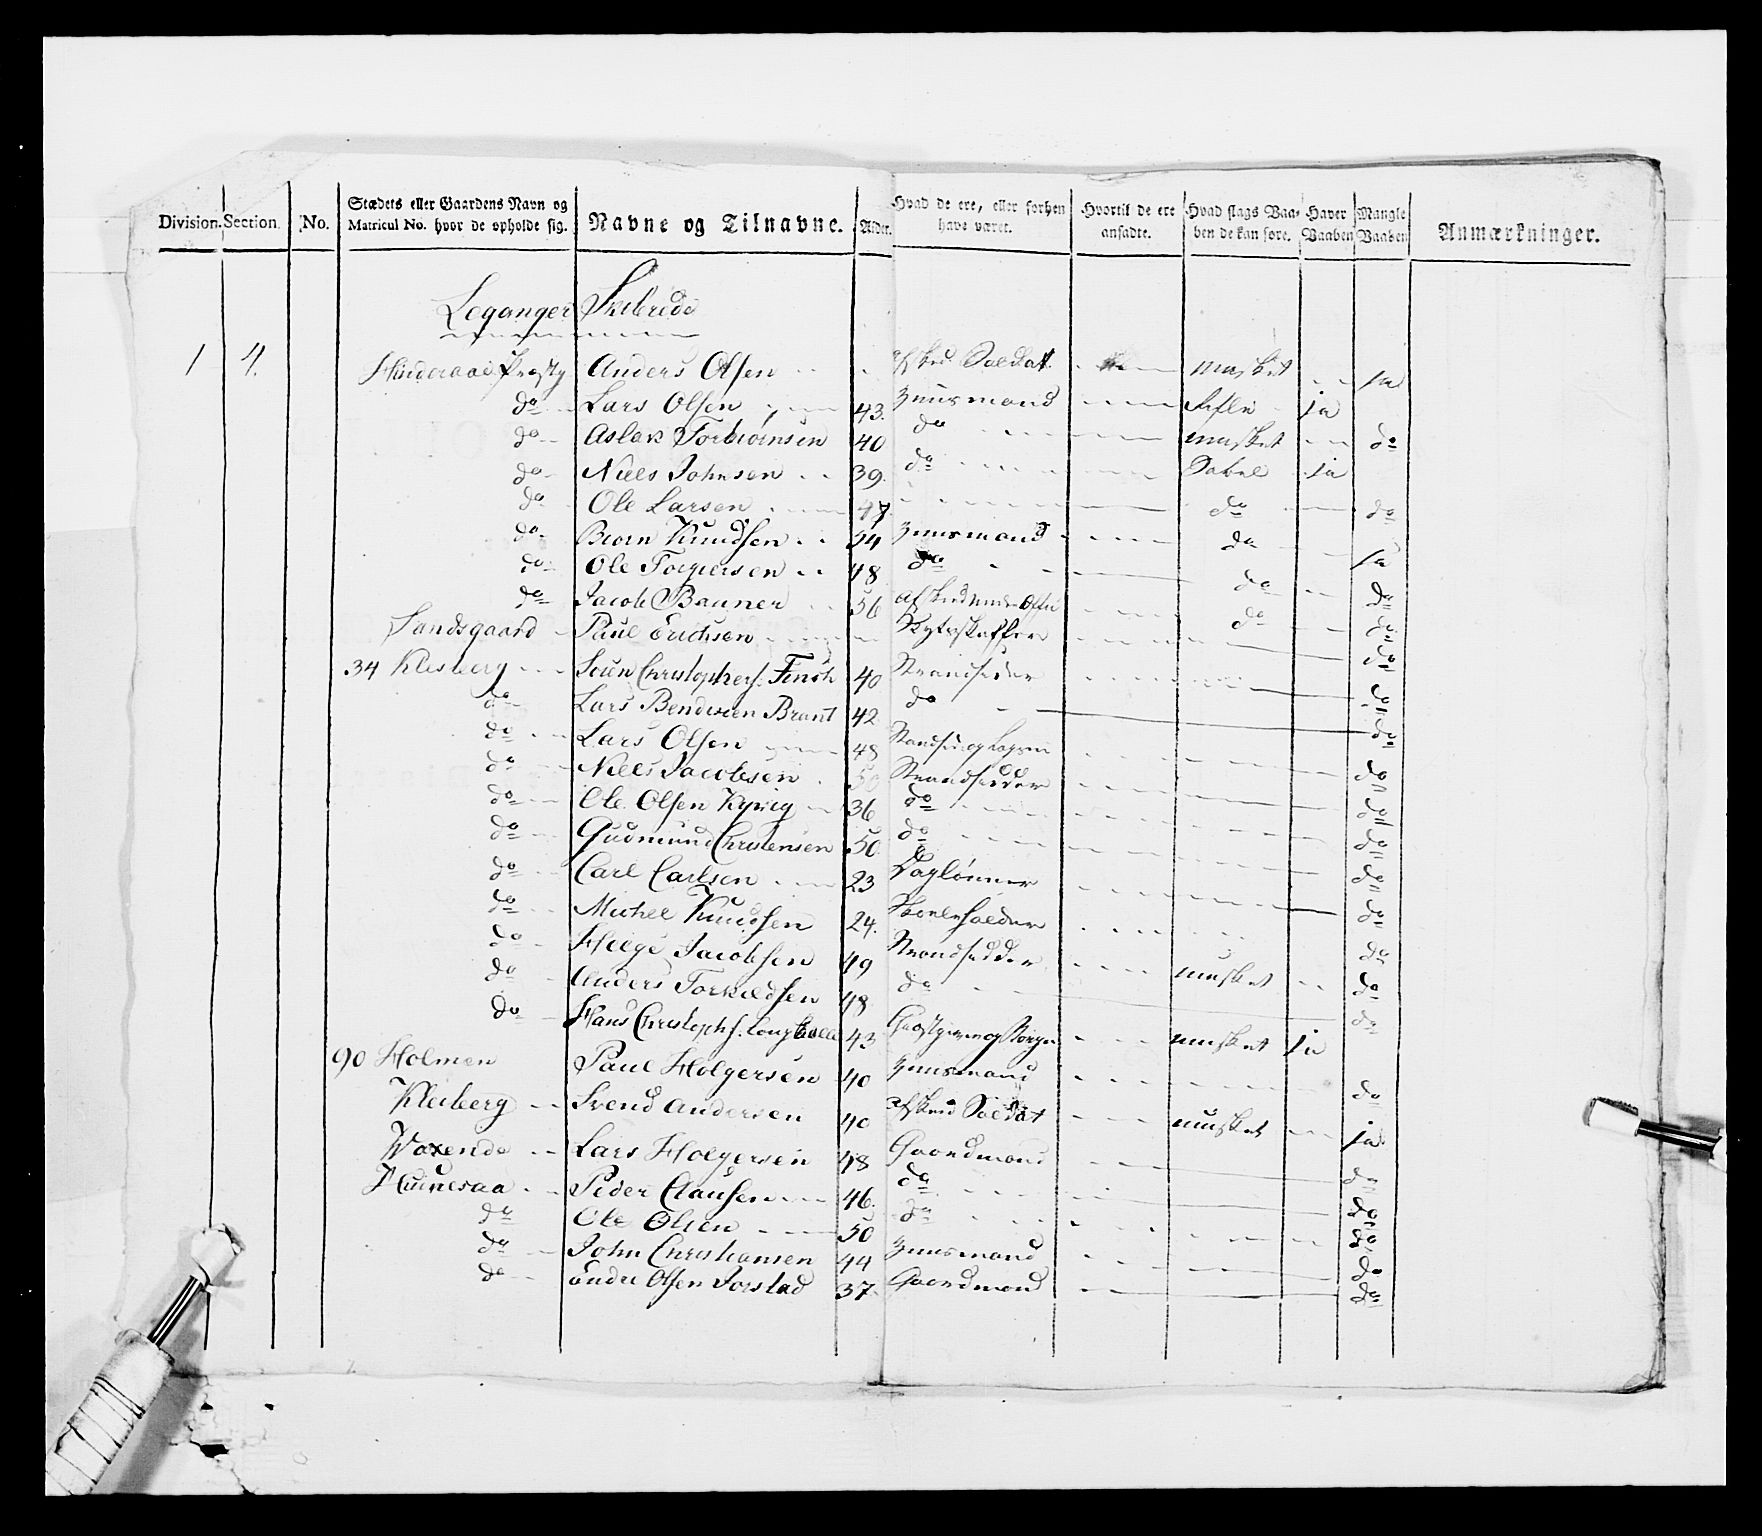 Division. Section. No. Stædets eller Gaardens Navn og Matricul No. hvor de opholde sig. Navne og Tilnavne. Alder. Hvad de ere, eller forhen have været. Hvortil de ere ansadte. Hvad slags Vaaben de kan føre. Haver Vaaben Mangle Vaaben Anmærkninger.
Leganger Skibrede
1 4. Hinderaae Anders Olsen afsked Soldat musket ja
do Lars Olsen 43. Huusmand Rifle ja
do Aslak Torbiörnsen 40 do musket do
do Niels Johnsen 39. do Sabel ja
do Ole Larsen 47 do do
do Biorn Knudsen 54 Huusmand do ja
do Ole 48 do do do
do Jacob Bauner 56 do do
Sandsgaard Paul Erichsen do
34 Kleiberg Søren Christophers. Finch 40 Strandsidder do
do Lars Bendixen Brant 42 do do
do Lars Olsen 48 do
do Niels Jacobsen 50 Strandsidder do
do Ole Olsen 36 do do
do Gudmund Christensen 50. do do
do Carl Carlsen 23 Daglönner do
do Michel Knudsen 24. Skoleholder do
do Helge Jacobsen 49 Strandsidder musket do
do Anders Torkildsen 48 do do
do Hans Christophs. 43 musket ja
90 Holmen Paul Holgersen 40 Huusmand do
Kleiberg Svend Andersen 40 afsked Soldat musket ja
Woxende Lars Holgersen 48 Gaardmand do
Huinesaa Peder Clausen 46. do do
do Ole Olsen 50 do do
do John Christiansen 44 Huusmand do
do Endre Olsen Jorstad 37. Gaardmand do